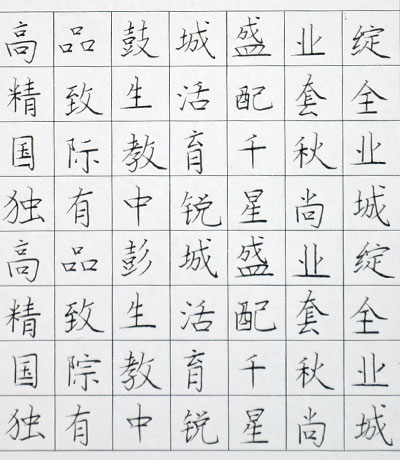 高品鼓城盛业绽
精致生活配套全
国际教育千秋业
独有中锐星尚城
高品彭城盛业绽
精致生活配套全
国际教育千秋业
独有中锐星尚城